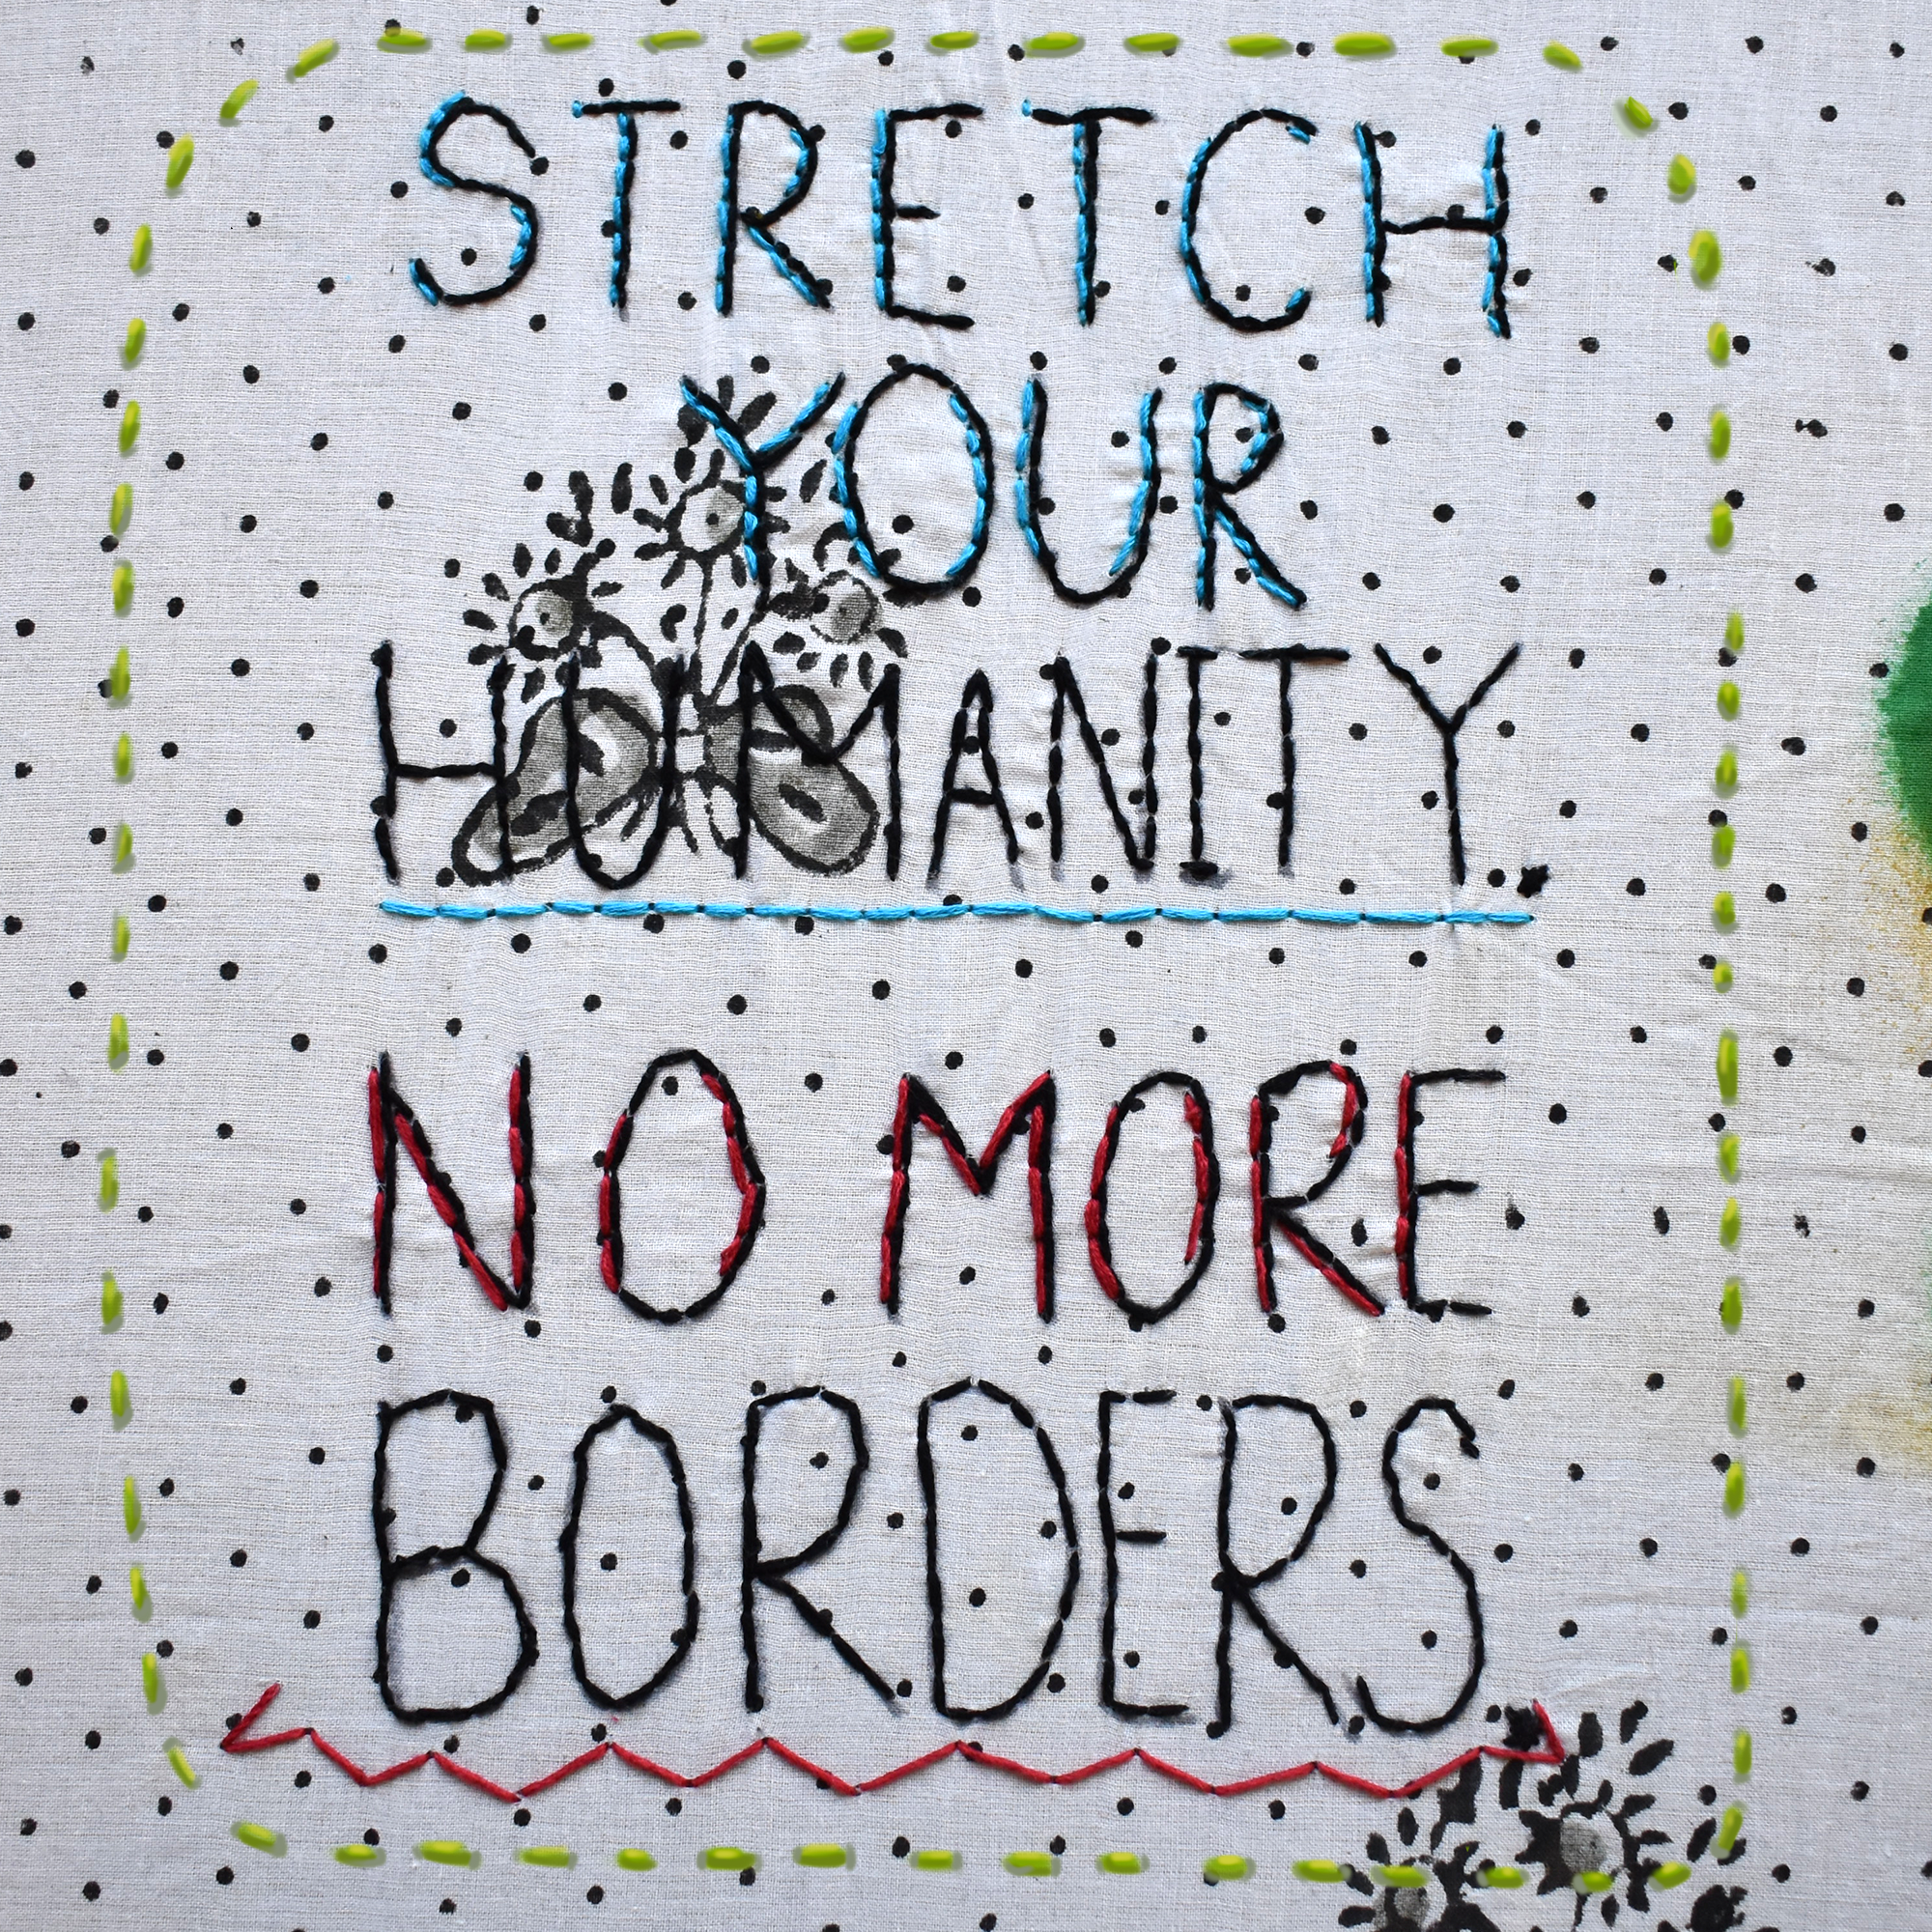 STRETCH
YOUR
HUMANITY.
NO MORE
BORDERS